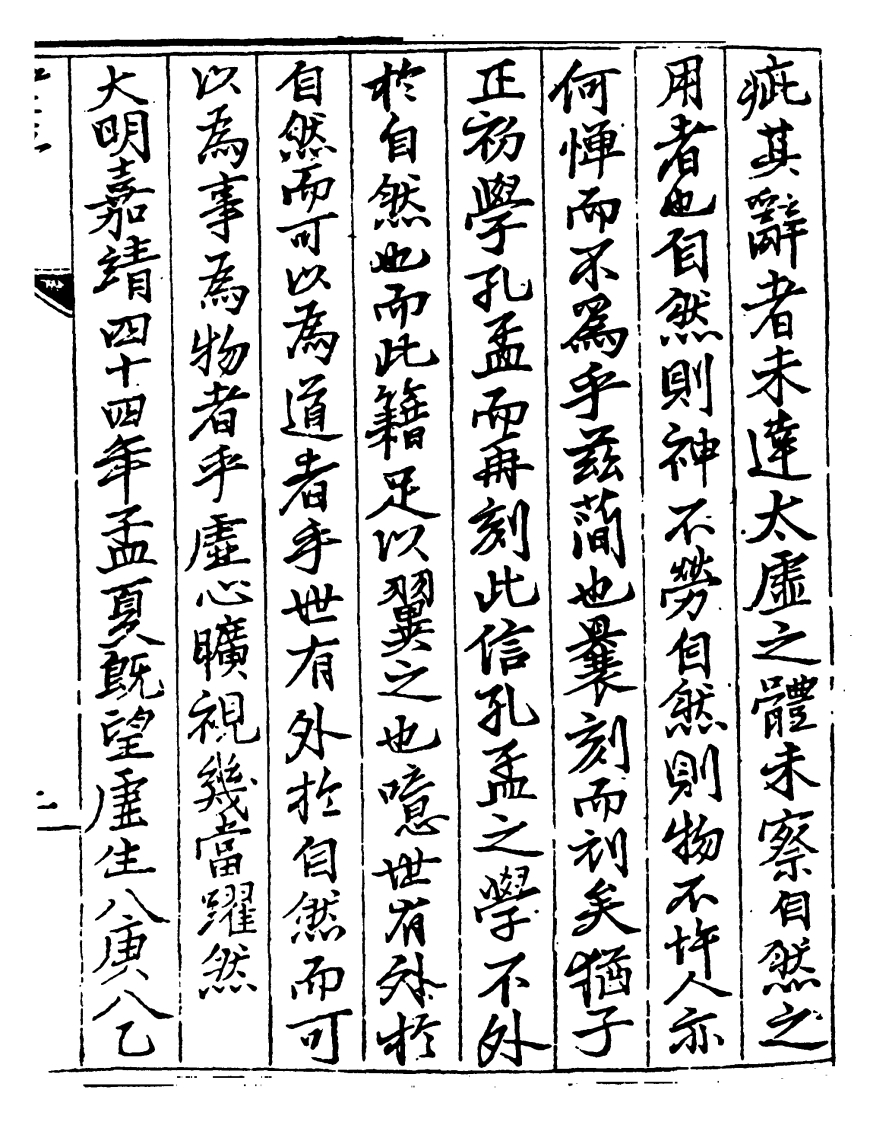 疵其辭者未達太虛之體未察自然之
用者也自然則神不勞自然則物不忤人亦
何憚而不爲乎兹蕳也曩刻而刓矣猶子
正初學孔孟而再刻此信孔孟之學不外
於自然也而此籍足以翼之也噫世有外於
自然而可以為道者乎世有外於自然而可
以為事為物者乎虛心曠視幾當躍然
大明嘉靖四十四年孟夏既望虛生八庚八乙